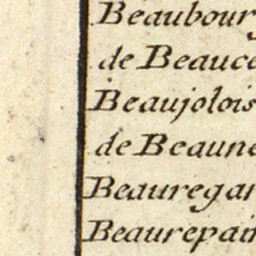 Beaubourg
de Beauce
Beaujolois
de Beaune
Beauregar
Beaurepair